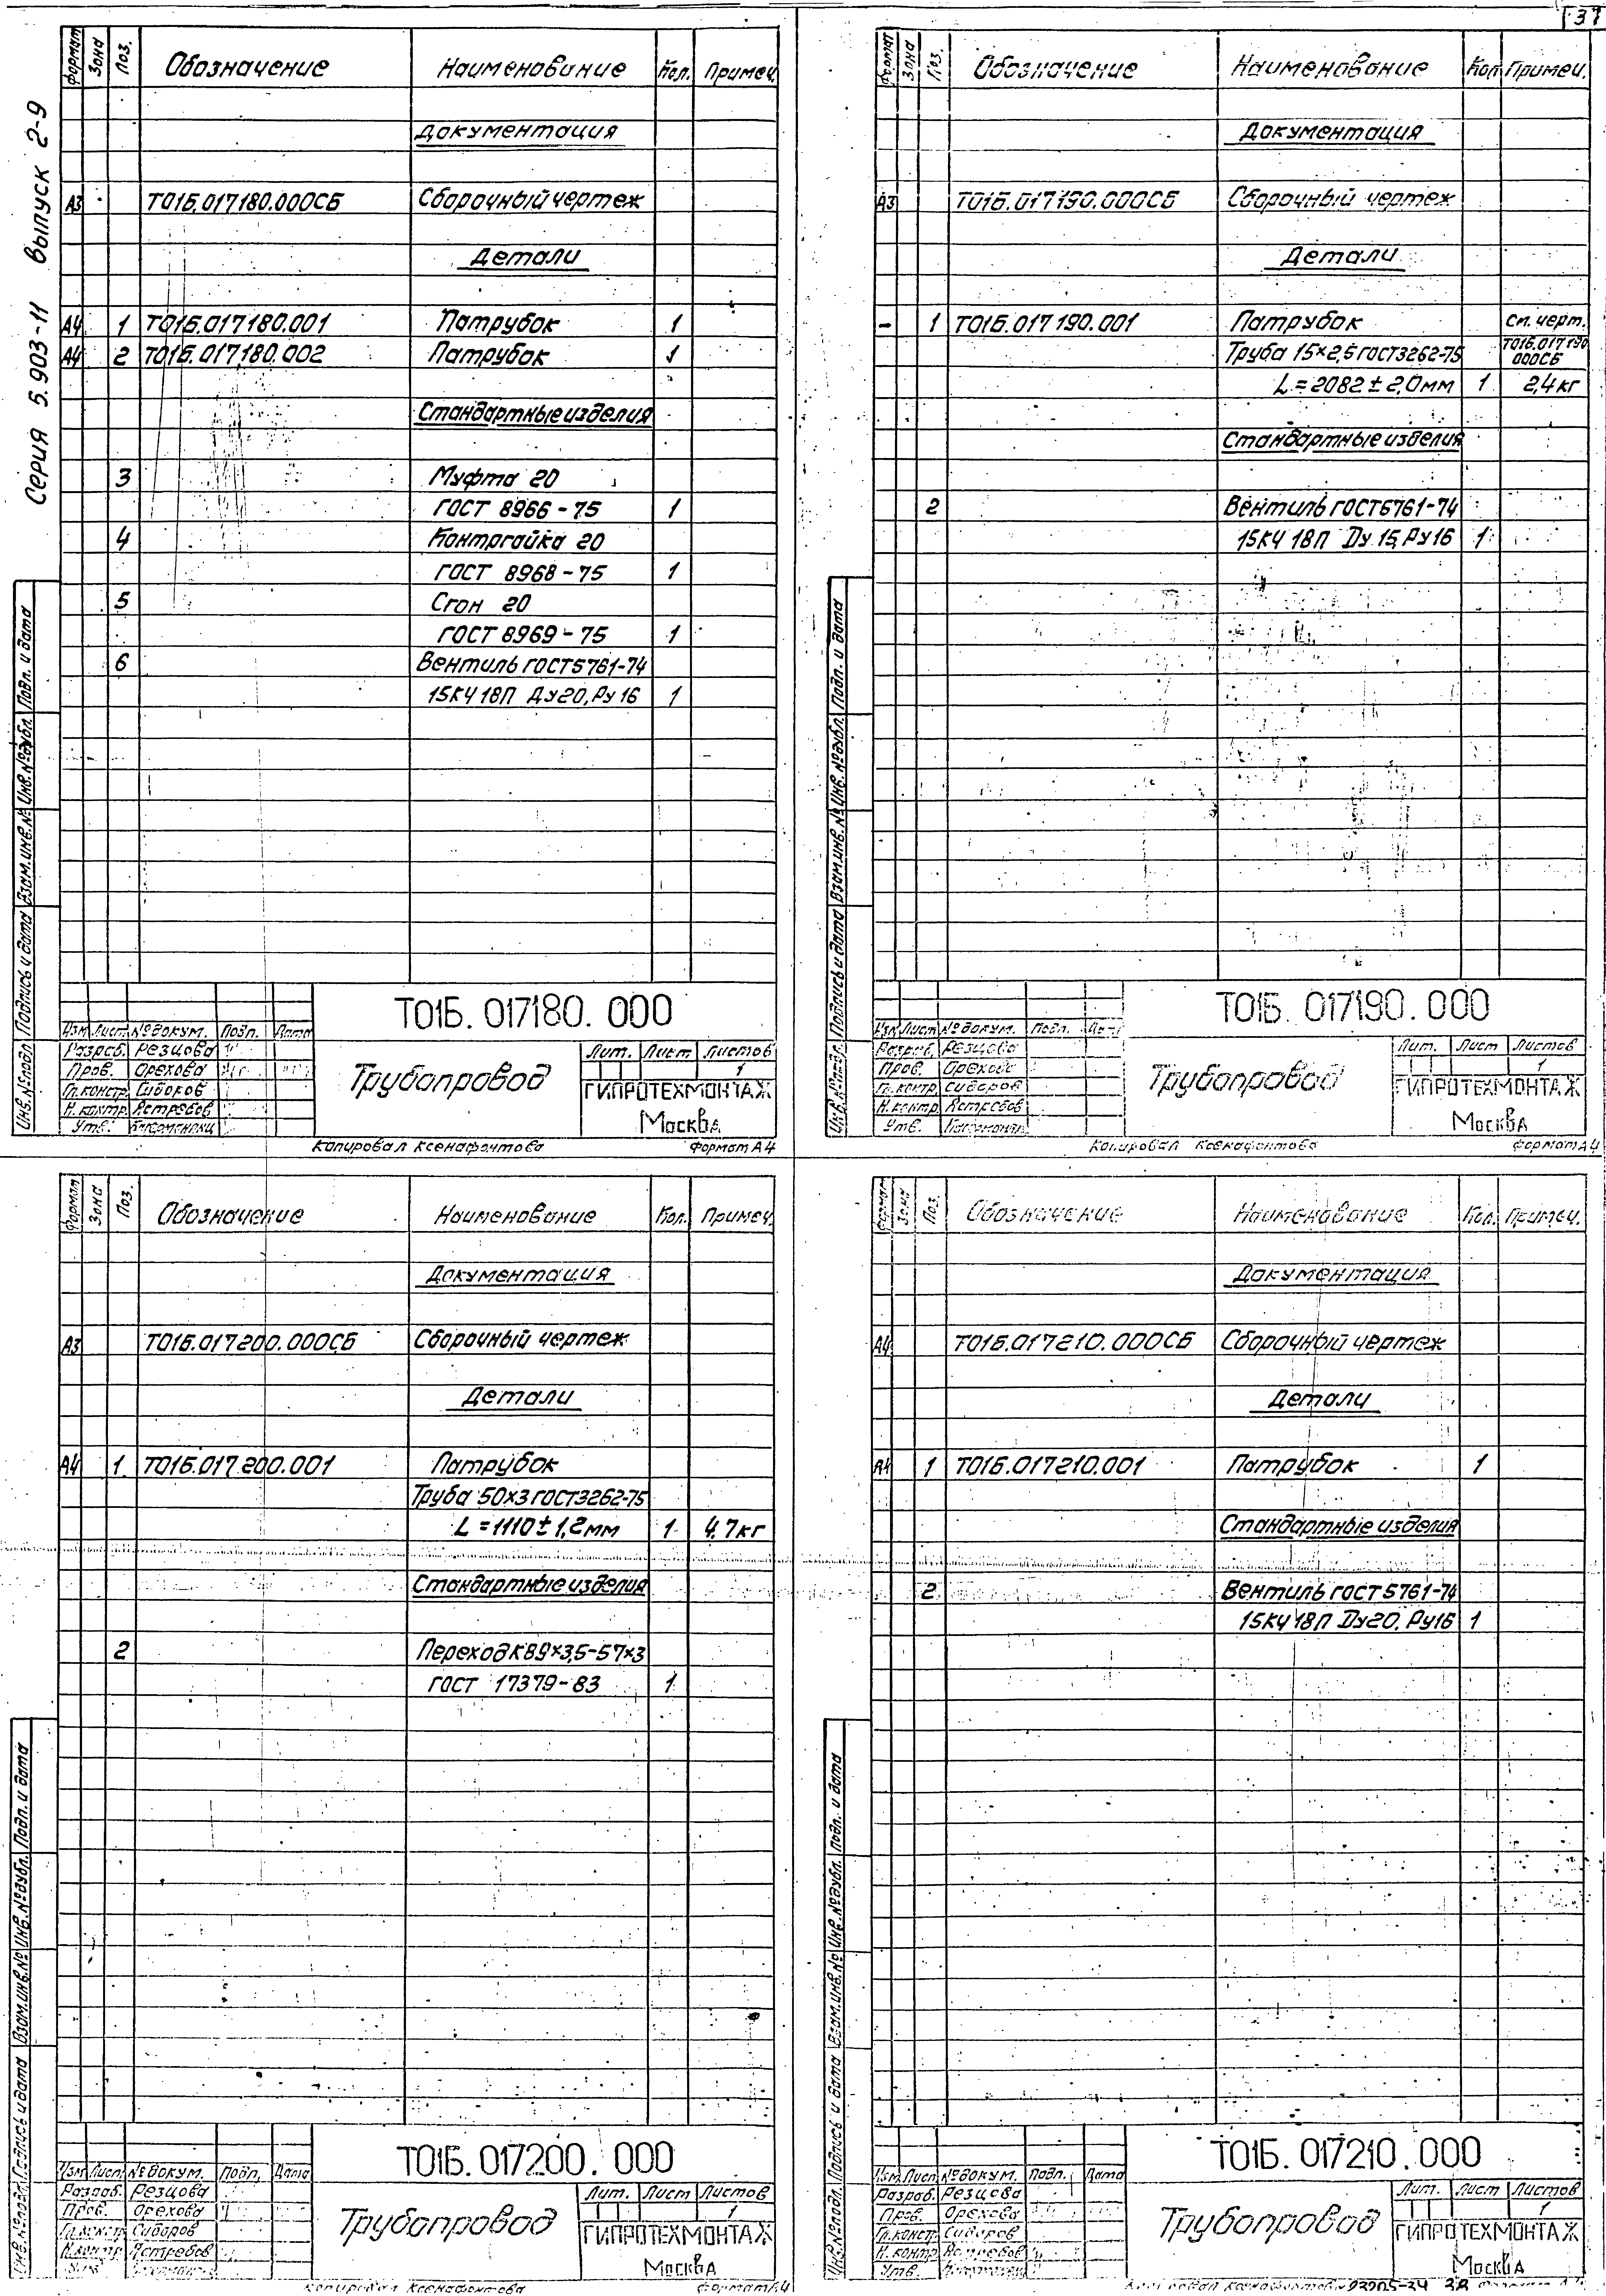 37
Серия 5.903-11 выпуск 2-9
Формат Зона Поз. Обозначение Наименование Кол. Примеч.
Документация
А3 Т01Б.017180.000СБ Сборочный чертеж
Детали
А4 1 Т01Б.017180.001 Патрубок 1
А4 2 Т01Б.017180.002 Патрубок 1
Стандартные изделия
3 Муфта 20
ГОСТ 8966-75 1
4 Контргайка 20
ГОСТ 8968-75 1
5 Сгон 20
ГОСТ 8969-75 1
6 Вентиль ГОСТ5761-74
15КЧ 18П Ду20, Ру16 1
Инв.№подл. Подпись и дата Взам.инв.№ Инв.№дубл. Подп. и дата
Т01Б. 017180. 000
Изм Лист №докум. Подп. Дата
Разраб. Резцова
Пров. Орехова
Гл.констр. Сидоров
Н.контр. Ястребов
Утв.
Трубопровод
Лит. Лист Листов
1
ГИПРОТЕХМОНТАЖ
Москва
Копировал Ксенафонтова Формат А4
Формат Зона Поз. Обозначение Наименование Кол Примеч.
Документация
А3 Т01Б.017190.000СБ Сборочный чертеж
Детали
- 1 Т01Б.017190.001 Патрубок см. черт.
Труба 15×2,5 ГОСТ3262-75 Т01Б.017190
000СБ
L=2082±2,0мм 1 2,4кг
Стандартные изделия
2 Вентиль ГОСТ5761-74
15КЧ 18П Ду 15, Ру16 1
Инв.№подл. Подпись и дата Взам.инв.№ Инв.№дубл. Подп. и дата
Т01Б. 017190. 000
Изм Лист №докум. Подп. Дата
Разраб. Резцова
Пров. Орехова
Гл.констр. Сидоров
Н.контр. Ястребов
Утв.
Трубопровод
Лит. Лист Листов
1
ГИПРОТЕХМОНТАЖ
Москва
Копировал Ксенафонтова Формат А4
Формат Зона Поз. Обозначение Наименование Кол. Примеч.
Документация
А3 Т01Б.017200.000СБ Сборочный чертеж
Детали
А4 1 Т01Б.017.200.001 Патрубок
Труба 50×3 ГОСТ3262-75
L=1110±1,2мм 1 4,7кг
Стандартные изделия
2 Переход К89×3,5-57×3
ГОСТ 17379-83 1
Инв.№подл. Подпись и дата Взам.инв.№ Инв.№дубл. Подп. и дата
Т01Б. 017200. 000
Изм Лист №докум. Подп. Дата
Разраб. Резцова
Пров. Орехова
Гл.констр. Сидоров
Н.контр. Ястребов
Утв.
Трубопровод
Лит. Лист Листов
1
ГИПРОТЕХМОНТАЖ
Москва
Копировал Ксенафонтова Формат А4
Формат Зона Поз. Обозначение Наименование Кол. Примеч.
Документация
А4 Т01Б.017210.000СБ Сборочный чертеж
Детали
А4 1 Т01Б.017210.001 Патрубок 1
Стандартные изделия
2 Вентиль ГОСТ5761-74
15КЧ 18П Ду20, Ру16 1
Инв.№подл. Подпись и дата Взам.инв.№ Инв.№дубл. Подп. и дата
Т01Б. 017210. 000
Изм Лист №докум. Подп. Дата
Разраб. Резцова
Пров. Орехова
Гл.констр. Сидоров
Н.контр. Ястребов
Утв.
Трубопровод
Лит. Лист Листов
1
ГИПРОТЕХМОНТАЖ
Москва
Копировал Ксенафонтова 38